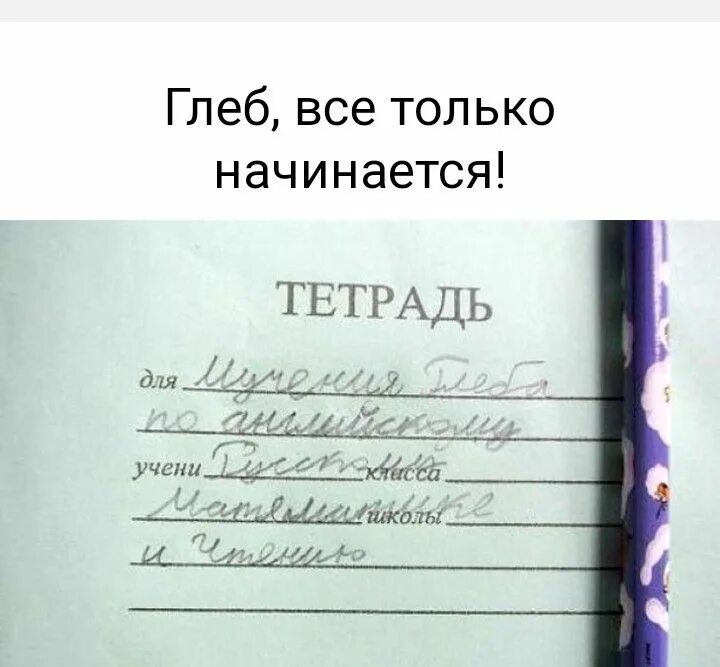 Глеб, все только
начинается!
ТЕТРАДЬ
для Мучения Глеба
по английскому
учени Русскому класса
Математике школы
и Чтению